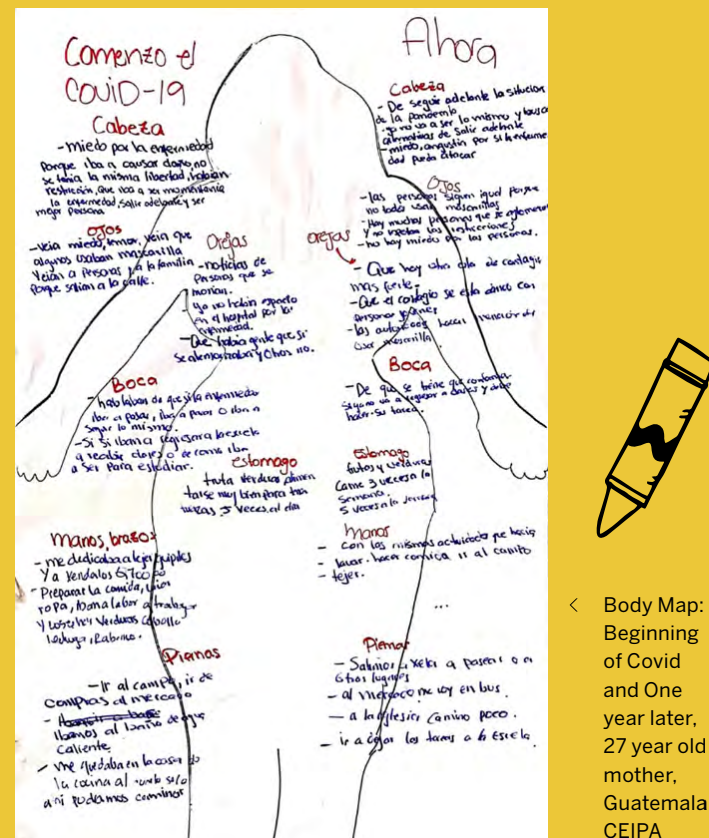 Comenzo el
COVID-19
Cabeza
- miedo por la enfermedad
porque iba a causar daño, no
se tenia la misma libertad, habian
restricción, que iba a ser momentania
la enfermedad, Salir adelante y ser
mejor persona
Ojos
- veia miedo, temor, veia que
algunos usaban mascarilla
Veian a personas y a la familia
porque salian a la calle.
Orejas
- noticias de
personas que se
morian.
ya no habia espacio
en el hospital por la
enfermedad.
- Que habia gente que si
se alarmaba y Otros no.
Boca
- hablaban de que si la enfermedad
iba a pasar, iba a parar o iban a
seguir lo mismo.
- Si si iban a regresar a la escuela
a recibir clases o de como iba
a ser para estudiar.
Estomago
fruta verduras alimen
tarse muy bien para
3 veces al dia
Manos, brazos
- me dedicaba a tejer guipiles
Y a venderlos Q700.00
- Preparar la comida,
ropa, a trabajar
y cosechar Verduras Cebolla
lechuga, Rabano.
Piernas
- Ir al campo, ir de
compras al mercado
- Ibamos al baño de agua
caliente
- me quedaba en la casa
la cocina al solo
ahi podiamos caminar
Ahora
Cabeza
- De seguir adelante la situcion
de la pandemia
- no va a ser lo mismo y busco
alternativas de Salir adelante
- miedo, angustia por si la enferme
dad pueda atacar
Ojos
- las personas siguen igual porque
no todos usan mascarillas
- Hay muchas personas que se aglomeran
Y no respetan las restricciones
- no hay miedo por las personas.
Orejas
- Que hay otra ola de contagio
mas fuerte.
- Que el contagio se esta dando con
personas jovenes
- las autoridades hacen mencion de
usar mascarilla.
Boca
- De que se tiene que
no va a regresar a clases y
hacer su tarea.
Estomago
frutas y verduras
Carne 3 veces a la
Semana.
5 veces a la
Manos
- Con las mismas actividades que hacia
- lavar, hacer comida ir al campo
- tejer.
...
Piernas
- Salimos a Xela a pasear o a
Otros lugares
- al mercado me voy en bus.
- a la iglesia camino poco.
- ir a dejar las tareas a la Escuela
< Body Map:
Beginning
of Covid
and One
year later,
27 year old
mother,
Guatemala
CEIPA